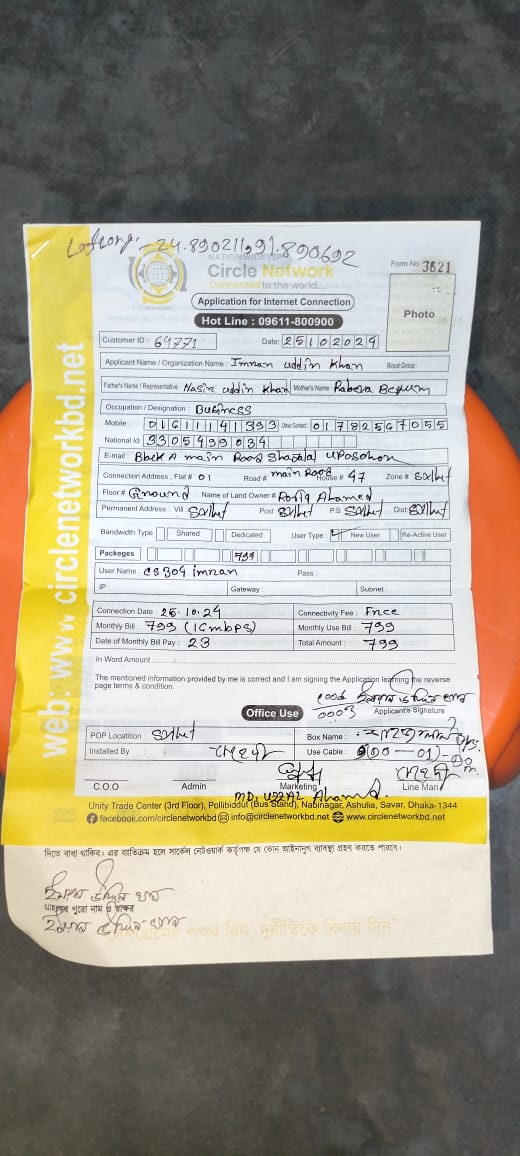 24.890211,91.890692
NATIONWIDE ISP
Circle Network
Connected to the world....
Form No 3621
Application for Internet Connection
Photo
Hot Line : 09611-800900
Customer ID : 64771 Date: 25102024
Applicant Name / Organization Name : Imran uddin Khan Blood Group :
Father's Name / Representative : Nasir uddin Khan Mother's Name Rabeya Begum
Occupation / Designation : Business
Mobile : 01611141393 Other Contact 01782567055
National Id : 3305499034
E-mail : Block A main Road Shahjalal uposohor
Connection Address : Flat # 01 Road # main Road House # 47 Zone # Sylhet
Floor # Ground Name of Land Owner # Rofiq Ahamed
Permanent Address : Vill : Sylhet Post: Sylhet P.S. Sylhet Dist: Sylhet
Bandwidth Type Shared Dedicated User Type : New User Re-Active User
Packeges 799
User Name : cs304 imran Pass :
IP : Gateway : Subnet :
Connection Date : 25.10.24 Connectivity Fee : Free
Monthly Bill : 799 (16mbps) Monthly Use Bill : 799
Date of Monthly Bill Pay : 23 Total Amount : 799
In Word Amount :
The mentioned information provided by me is correct and I am signing the Application learning the reverse
page terms & condition.
ইমরান উদ্দিন খান
0003 Applicant's Signature
Office Use
POP Locatition : Sylhet Box Name :
Installed By : মেহেদী Use Cable :
C.O.O Admin Marketing মেহেদী Line Man
MD. UZZAL Ahamed.
Unity Trade Center (3rd Floor), Pollibiddut (Bus Stand), Nabinagar, Ashulia, Savar, Dhaka-1344
facebook.com/circlenetworkbd info@circlenetworkbd.net www.circlenetworkbd.net
web: www.circlenetworkbd.net
দিতে বাধ্য থাকিব। এর ব্যতিক্রম হলে সার্কেল নেটওয়ার্ক কর্তৃপক্ষ যে কোন আইনানুগ ব্যবস্থা গ্রহণ করতে পারবে।
ইমরান উদ্দিন খান
গ্রাহকের পুরো নাম ও স্বাক্ষর
ইমরান উদ্দিন খান
শপথ নিন, দুর্নীতিকে বিদায় দিন"